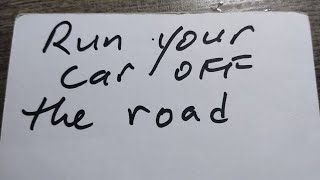 Run your
car OFF
the road